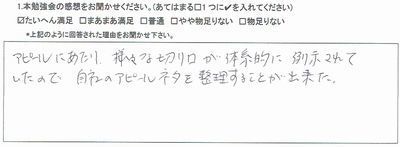 1.本勉強会の感想をお聞かせください。(あてはまる□1つに✔を入れてください)
☑たいへん満足 □まあまあ満足 □普通 □やや物足りない □物足りない
*上記のように回答された理由をお聞かせ下さい。
アピールにあたり、様々な切り口が体系的に例示されて
いたので自社のアピールネタを整理することが出来た。